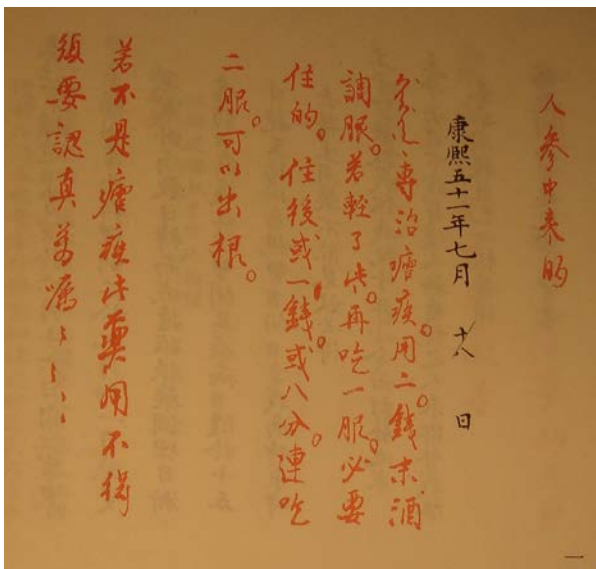 人參中來的
康熙五十一年七月 十八 日
專治瘧疾。用二。錢末酒
調服。若輕了些。再吃一服。必要
住的。住後或一錢。或八分。連吃
二服。可以出根。
若不是瘧疾此藥用不得
須要認真萬嘱〻〻〻〻
一